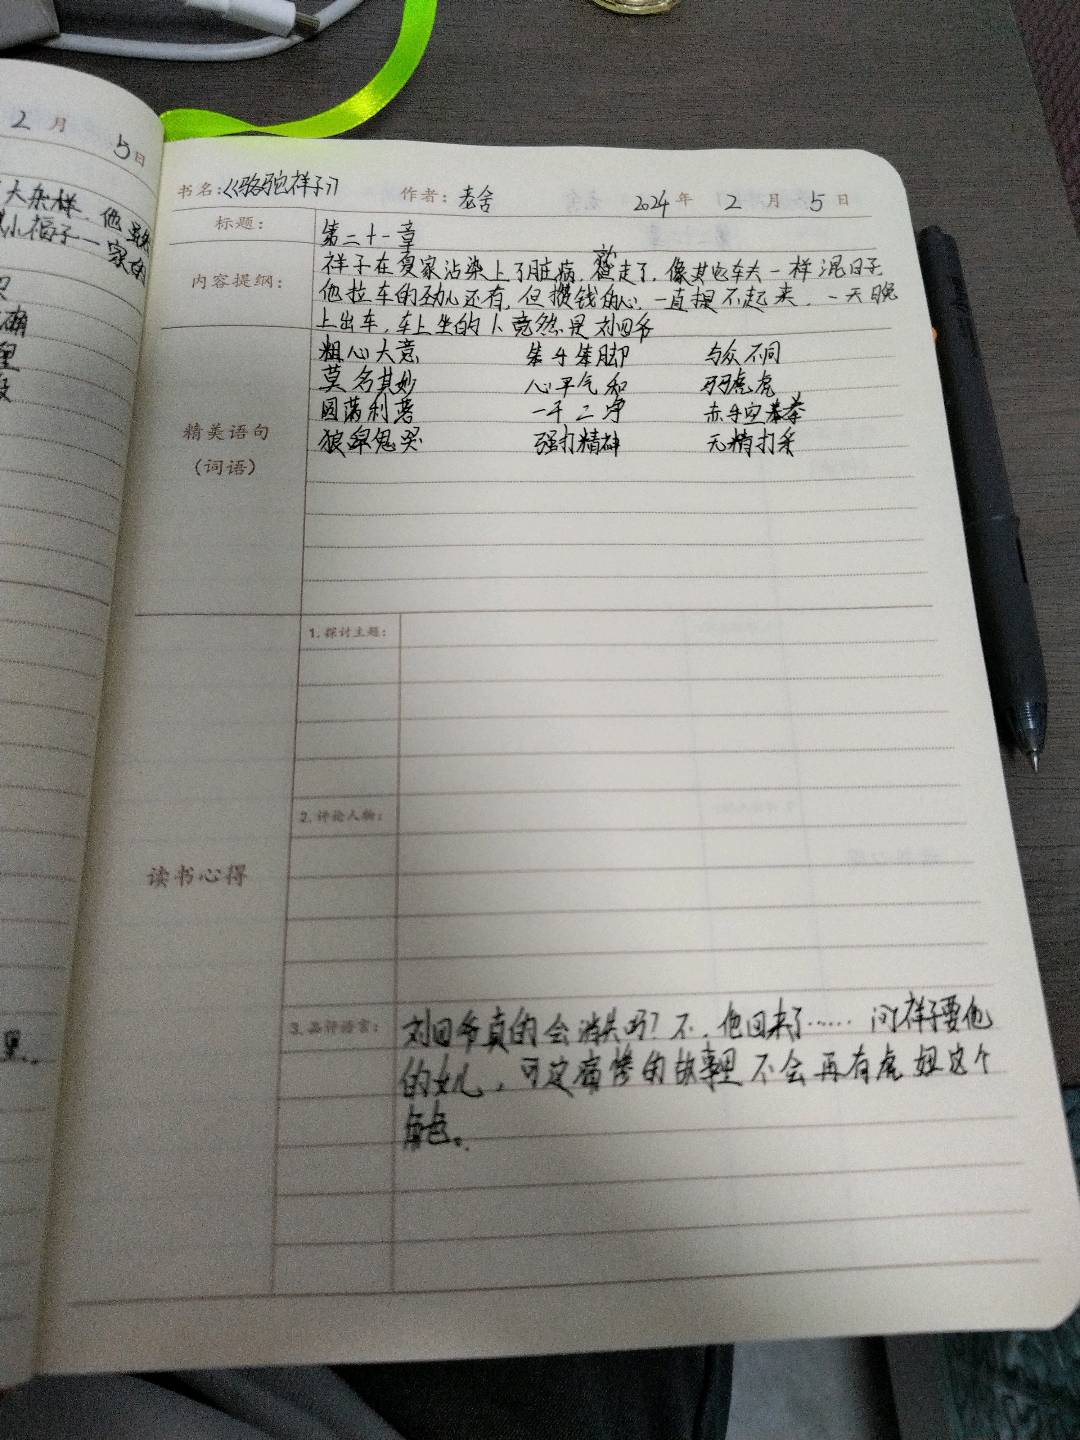 2 月 5 日
书名:《骆驼祥子》 作者: 老舍 2024 年 2 月 5 日
标题: 第二十一章
内容提纲: 祥子在夏家沾染上了脏病,就走了,像其它车夫一样混日子
他拉车的劲儿还有,但攒钱的心一直提不起来,一天晚
上出车,车上坐的人竟然是刘四爷
精美语句
(词语)
粗心大意 笨手笨脚 与众不同
莫名其妙 心平气和 马马虎虎
圆满利落 一干二净 赤手空拳
狼嚎鬼哭 强打精神 无精打采
读书心得
1.探讨主题:
2.评论人物:
3.品评语言: 刘四爷真的会消失吗?不,他回来了……问祥子要他
的女儿,可这痛惨的故事里不会再有虎妞这个
角色。